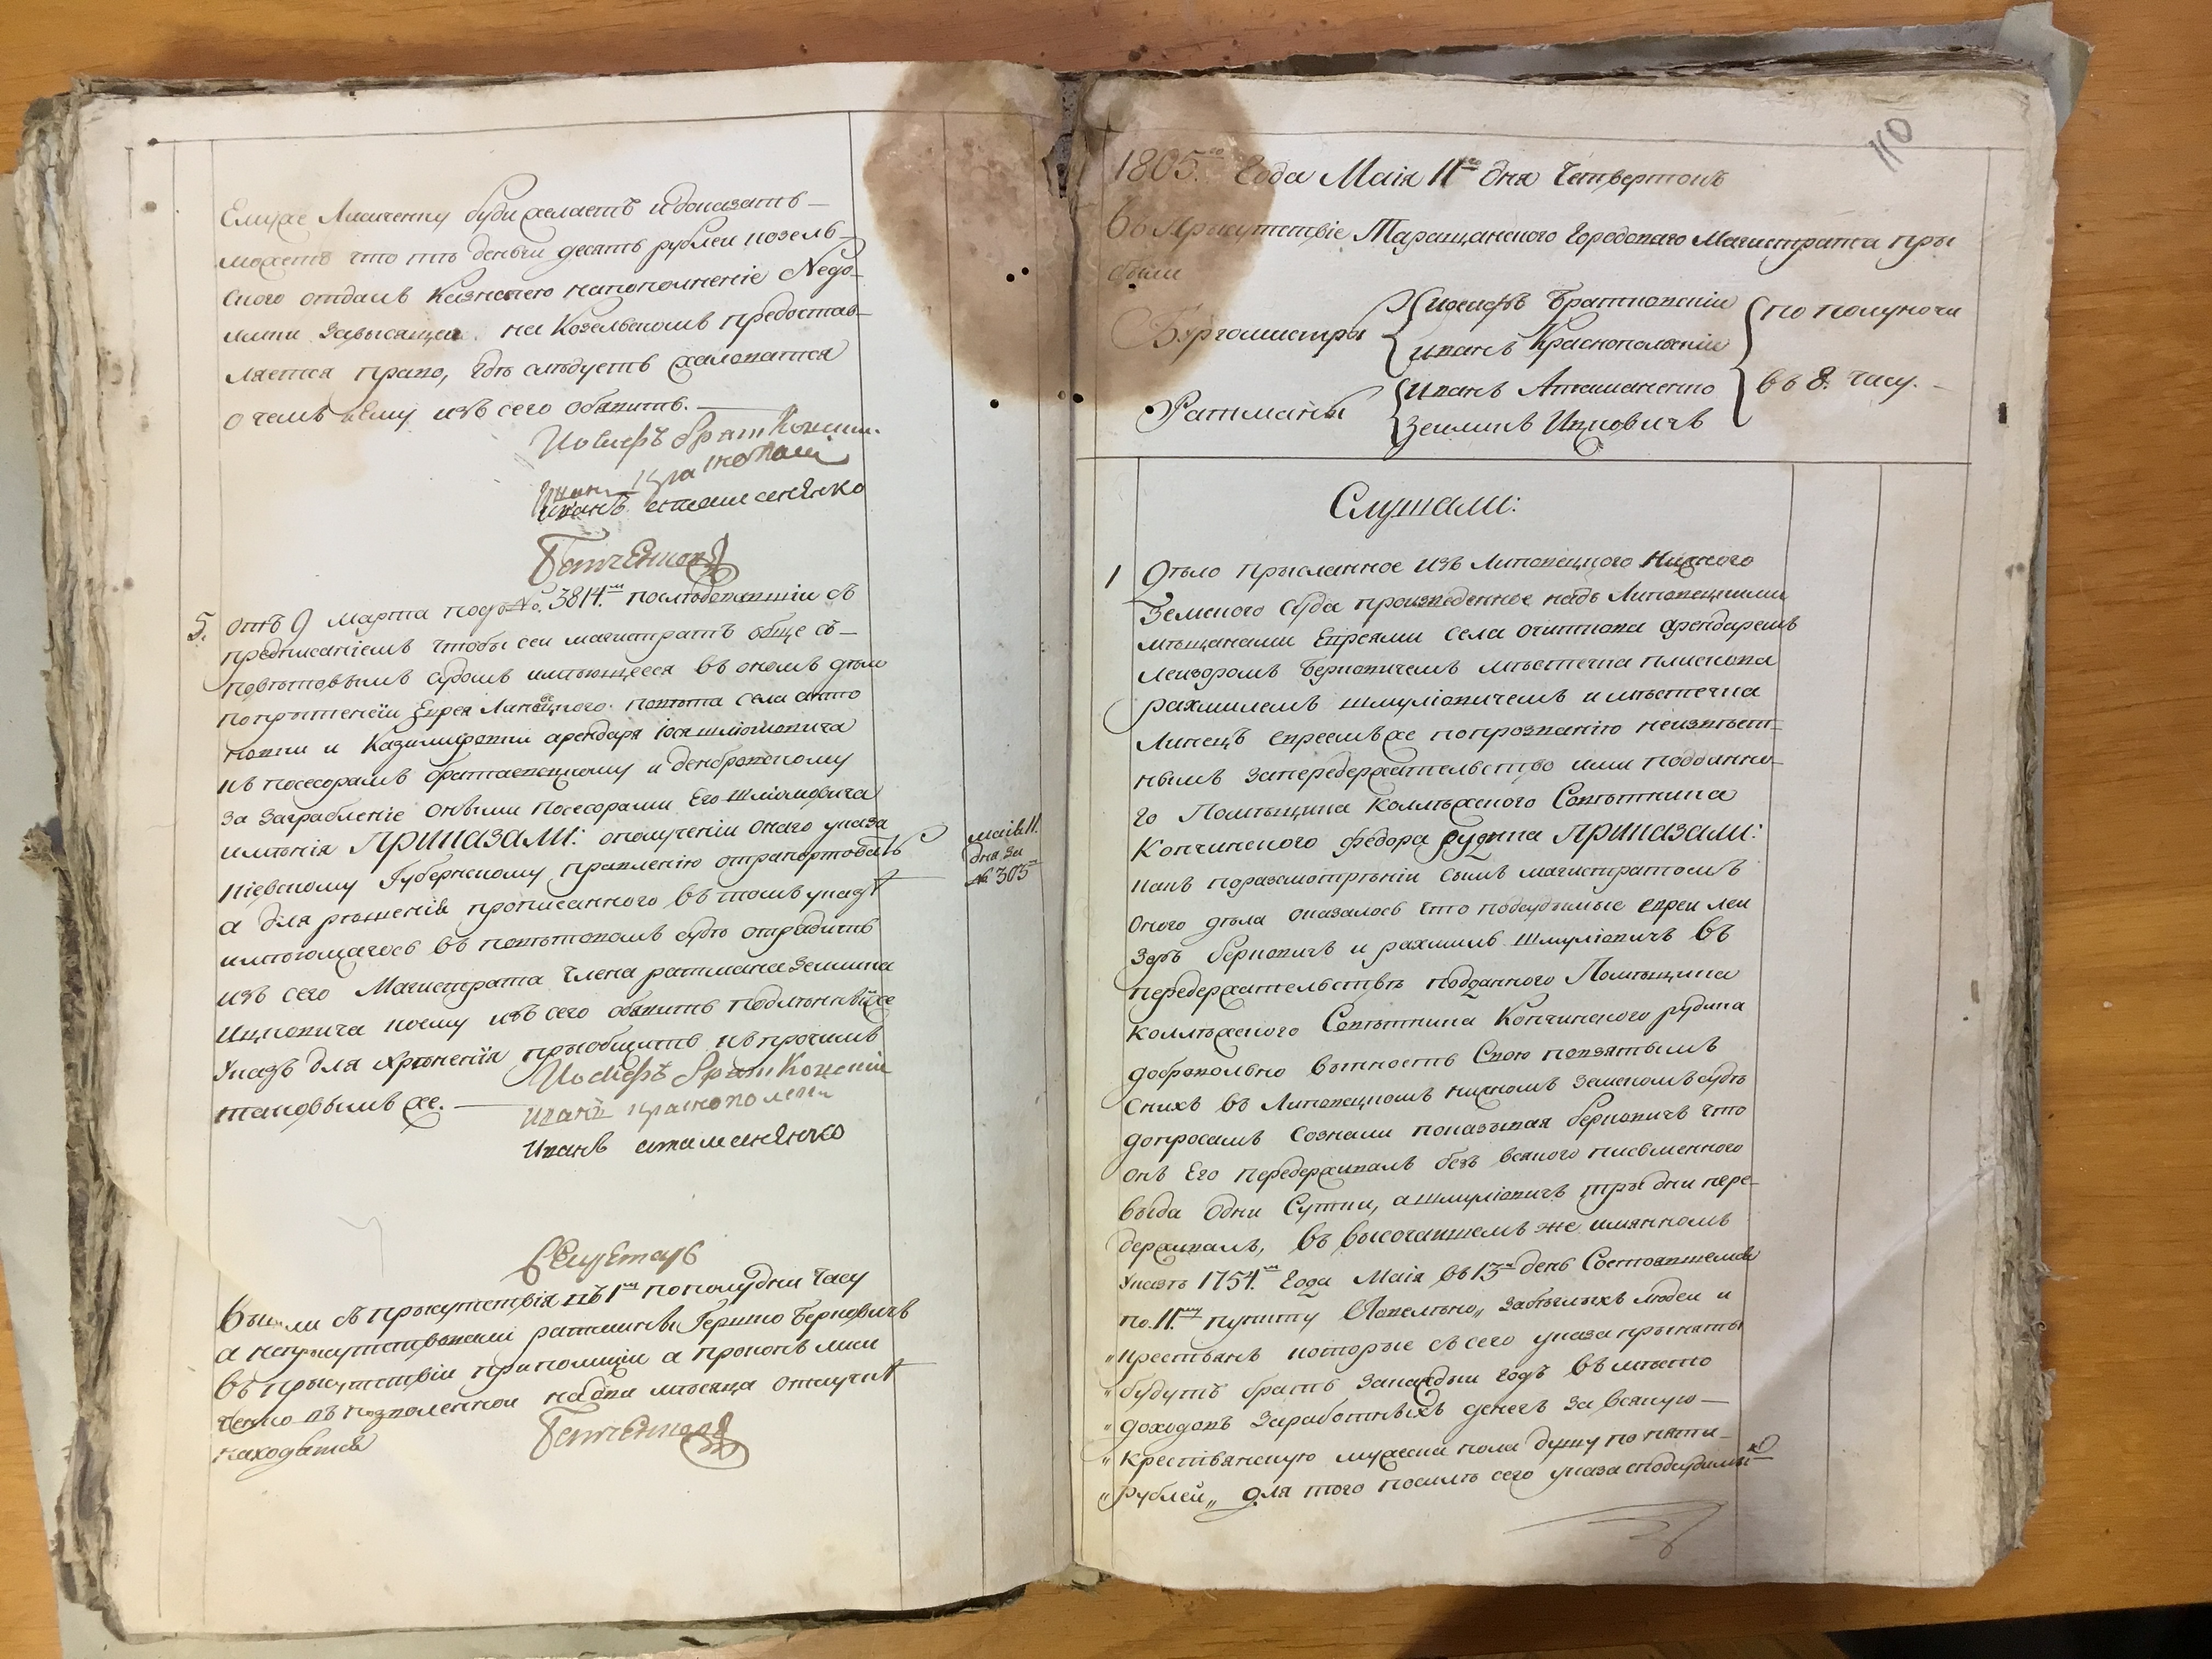 Емуже Лисиченку буди желаетъ идоказать
можетъ что тѣ деньги десять рублей козель
ского отдалъ Казначею напополненіе Недо
имки Зависящей на Козельскомъ предостав
ляется право, гдѣ слѣдуетъ жаловатся
о чемъ Ему изъ сего объявить.
Иосифъ Братковский
Иванъ Краснополский
Иванъ атаманЕнко
5. отъ 9 марта подъ №. 3814.мъ послѣдовавшій съ
предписаніемъ чтобы сей магистратъ обще съ
повѣтовымъ судомъ имѣющееся въ ономъ дѣло
по прытензіи Еврея Липовецкого повѣта села анто
новки и Казимировки арендаря
къ посесорамъ и
за заграбленіе оными посесорами Его шліомовича
имѣнія Приказали: ополученіи онаго указа
Кіевскому Губернскому правленію отрапортовать
маія 11.
дня за
№ 303
а для рѣшенія прописанного въ томъ указѣ
имѣющагось въ повѣтовомъ судѣ отрядить
изъ сего Магистрата Члена ратмана Зелмана
Ицковича коему изъ сего объявить подлѣнныйже
Указъ для храненія пріобщить къ прочимъ
таковымъ же.
Иосифъ Братковский
Иванъ Краснополский
Иванъ атаманЕнко
Секретарь
Вышли съ прысутствія въ 1м пополудни часу
а неприсутствовали ратманъ Бернович
въ прысутствіи при полиціи а
ченко въ позволенной на два мѣсяца отлучкѣ
находятся
110
1805.го Года Маія 11го дня Четвертокъ
Въ Прысутствіе Таращанского Городоваго Магистрата при
были
Бургомистри
Иосифъ Братковскій
Иванъ Краснополскій
по полуночи
Ратманы
Иванъ Атаманенко
Зелманъ Ицковичъ
въ 8. часу.
Слушали:
1 Дѣло прысланное изъ Липовецкого Нижнего
Земского Суда произведенное надъ Липовецкими
мѣщанами Евреями села очиткова арендаремъ
Лейзоромъ Берковичемъ мѣстечка плискова
рахмилемъ шмуліовичемъ и мѣстечка
Липецъ евреемъже попрозванію неизвѣст
нымъ запередержательство ими подданно
го Помѣщика Коллѣжского Совѣтника
Копчинского федора рудика Приказали:
какъ поразсмотрѣніи симъ магистратомъ
оного дѣла оказалось что подсудимые евреи леи
зоръ берковичъ и рахмиль шмуліовичъ въ
передержательствѣ подданного Помѣщика
Коллѣжского Совѣтника Копчинского рудика
доброволно вытность Свою повзятымъ
снихъ въ Липовецкомъ нижномъ Земскомъ судѣ
допросамъ сознали показывая берковичъ что
онъ Его передержывалъ безъ всякого писменного
выда одни Сутки, а шмуліовичъ тры дни пере
держывалъ, въ высочайшемъ же имянномъ
Указѣ 1754.м Года Маія въ 13й день Состоявшемся
по. 11.му пункту Сказанно,, забѣглыхъ людей и
„крестьянъ которые съ сего указа прыняты
„будутъ брать закаждый годъ въ мѣсто
„доходовъ заработныхъ денегъ за всякую
„Крестьянскую мужеска пола душу по пяти
„рублей,, для того посилѣ сего указа сподсудимыхъ